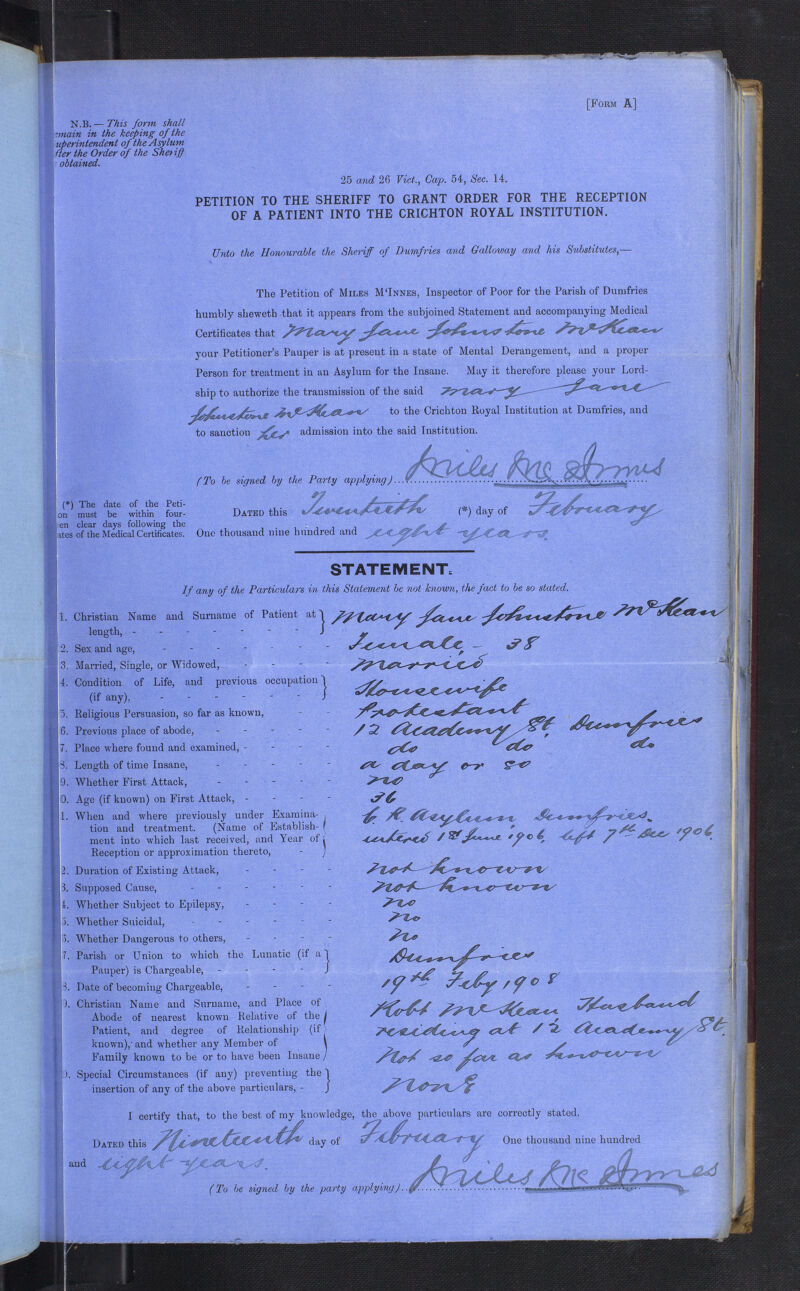 [FORM A]
N.B.— This form shall
emain in the keeping of the
uperintendent of the Asylum
fter the Order of the Sheriff
obtained.
25 and 26 Vict., Cap. 54, Sec. 14.
PETITION TO THE SHERIFF TO GRANT ORDER FOR THE RECEPTION
OF A PATIENT INTO THE CRICHTON ROYAL INSTITUTION.
Unto the Honourable the Sheriff of Dumfries and Galloway and his Substitutes,—
The Petition of MILES M'INNES, Inspector of Poor for the Parish of Dumfries
humbly sheweth that it appears from the subjoined Statement and accompanying Medical
Certificates that Mary Jane Johnstone McKean
your Petitioner's Pauper is at present in a state of Mental Derangement, and a proper
Person for treatment in an Asylum for the Insane. May it therefore please your Lord-
ship to authorize the transmission of the said Mary Jane
Johnstone McKean to the Crichton Royal Institution at Dumfries, and
to sanction her admission into the said Institution.
(To be signed by the Party applying)... Miles McInnes
(*) The date of the Peti-
on must be within four-
en clear days following the
ates of the Medical Certificates.
DATED this Twentieth (*) day of February
One thousand nine hundred and eight years.
STATEMENT.
If any of the Particulars in this Statement be not known, the fact to be so stated.
1. Christian Name and Surname of Patient at length, - Mary Jane Johnstone McKean
2. Sex and age, - Female, 38
3. Married, Single, or Widowed, - married
4. Condition of Life, and previous occupation (if any), - Housewife
5. Religious Persuasion, so far as known, - Protestant
6. Previous place of abode, - 12 Academy St. Dumfries
7. Place where found and examined, - do do do
8. Length of time Insane, - a day or so
9. Whether First Attack, - no
0. Age (if known) on First Attack, - 36
1. When and where previously under Examina- C. R. Asylum, Dumfries.
tion and treatment. (Name of Establish- entered 1st June 1906, left 7th Dec 1906.
ment into which last received, and Year of
Reception or approximation thereto, -
2. Duration of Existing Attack, - not known
3. Supposed Cause, - not known
4. Whether Subject to Epilepsy, - no
5. Whether Suicidal, - no
6. Whether Dangerous to others, - no
7. Parish or Union to which the Lunatic (if a Pauper) is Chargeable, - Dumfries
8. Date of becoming Chargeable, - 19th Feby 1908
9. Christian Name and Surname, and Place of
Abode of nearest known Relative of the Robt McKean Husband
Patient, and degree of Relationship (if residing at 12 Academy St.
known), and whether any Member of
Family known to be or to have been Insane Not so far as known
0. Special Circumstances (if any) preventing the
insertion of any of the above particulars, - None
I certify that, to the best of my knowledge, the above particulars are correctly stated.
DATED this Nineteenth day of February One thousand nine hundred
and eight years.
(To be signed by the party applying)... Miles McInnes